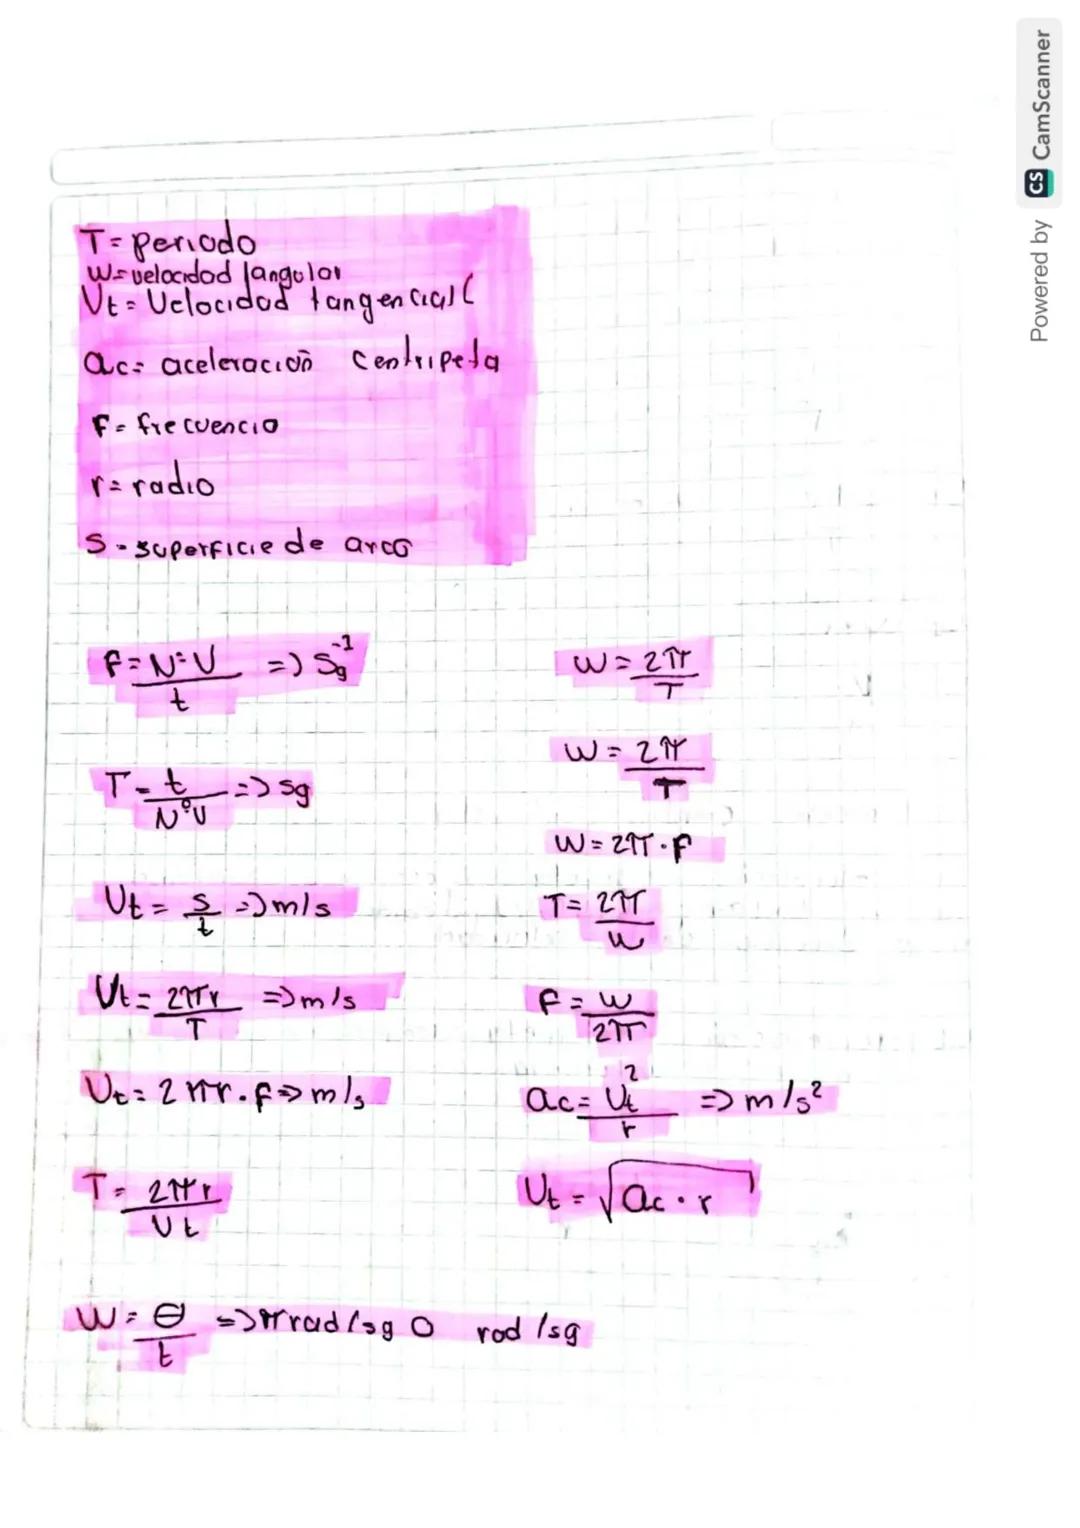 T= periodo
W=velocidad angular
Vt= Velocidad tangencial
ac= aceleración centripeta
F= frecuencia
r= radio
S= superficie de arco
F= N°V/t => Sg⁻¹
T= t/N°V => sg
Vt= s/t => m/s
Vt= 2πr/T => m/s
Vt= 2πr.f => m/s
T= 2πr/Vt
W= θ/t => πrad/sg o rad/sg
W= 2π/T
W= 2π/T
W= 2π.F
T= 2π/W
F= W/2π
ac= Vt²/r => m/s²
Vt= √ac.r
Powered by CS CamScanner